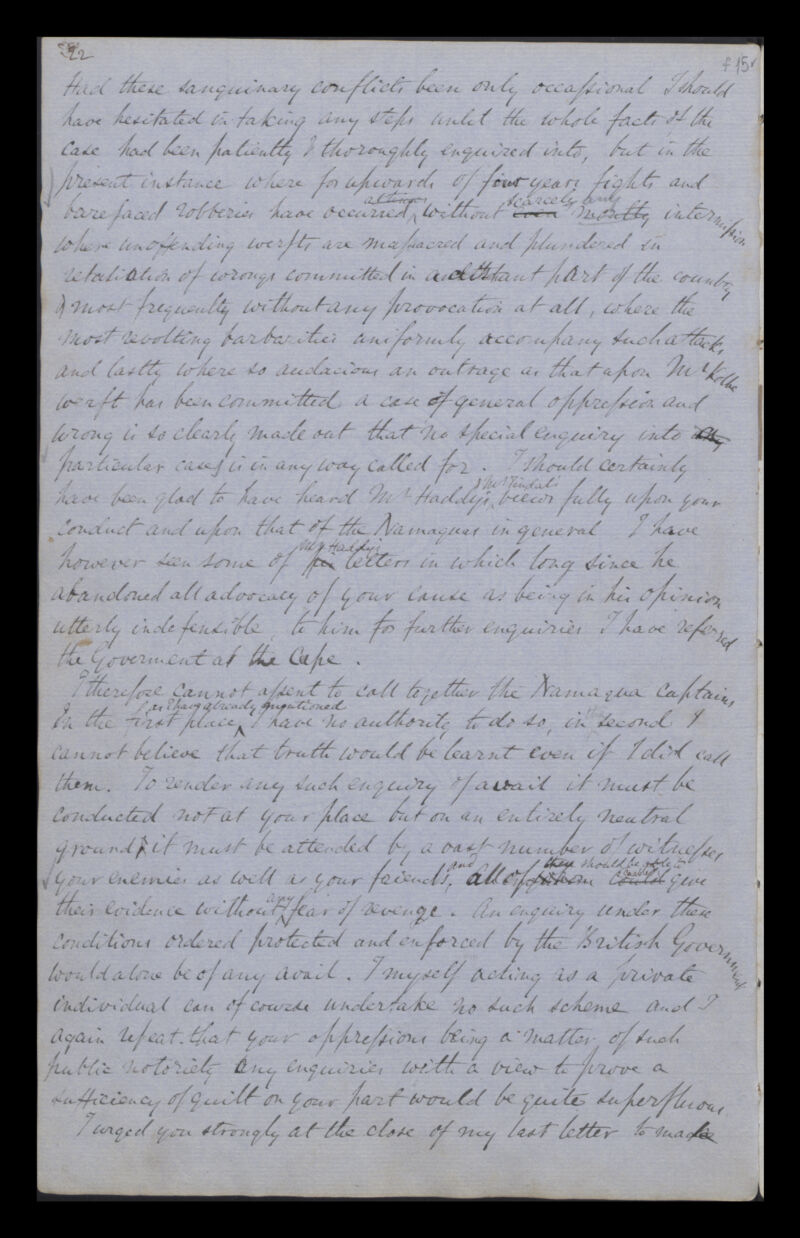 22
f 15r
Had these sanguinary conflicts been only occassional I should
have hesitated in taking any steps untill the whole facts of the
case had been patiently & thoroughly enquired into, but in the
present instance where for upwards of four years fights and
at times scarcely any
barefaced robberies have occurred, without even monthly intermission
where unoffending werfts are massacred and plundered in
retaliation of wrongs committed in a distant part of the country
& most frequently without any provocation at all, where the
most revolting barbarities uniformly accompany such attacks
and lastly where so audacious an outrage as that upon Mr Kolbe
werft has been committed a case of general oppression and
wrong is so clearly made out that no special enquiry into any
particular cases is in any way called for. I should certainly
& Mr Tindal's
have been glad to have heard Mr Haddy's, views fully upon your
conduct and upon that of the Namaquas in general I have
Mr Haddy's
however seen some of his letters in which long since he
abandoned all advocacy of your cause as being in his opinion
utterly indefensible, to him for further enquiries I have referred
the Goverment at the Cape.
I therefore cannot assent to call together the Namaqua Captains
as I have already mentioned
In the first place, I have no authority to do so, in second I
cannot believe that truth would be learnt even if I did call
them. To render any such enquiry of avail it must be
conducted not at your place but on an entirely neutral
ground, it must be attended by a vast number of witnesses
and they should be able to
your enemies as well as your friends, all of whom could give
any
their evidence without fear of revenge. An enquiry under these
conditions ordered protected and enforced by the British Government
would alone be of any avail. I myself acting as a private
individual can of course undertake no such scheme and I
again repeat that your oppressions being a matter of such
public notoriety any enquiries with a view to prove a
sufficiency of guilt on your part would be quite superfluous
I urged you strongly at the close of my last letter to make